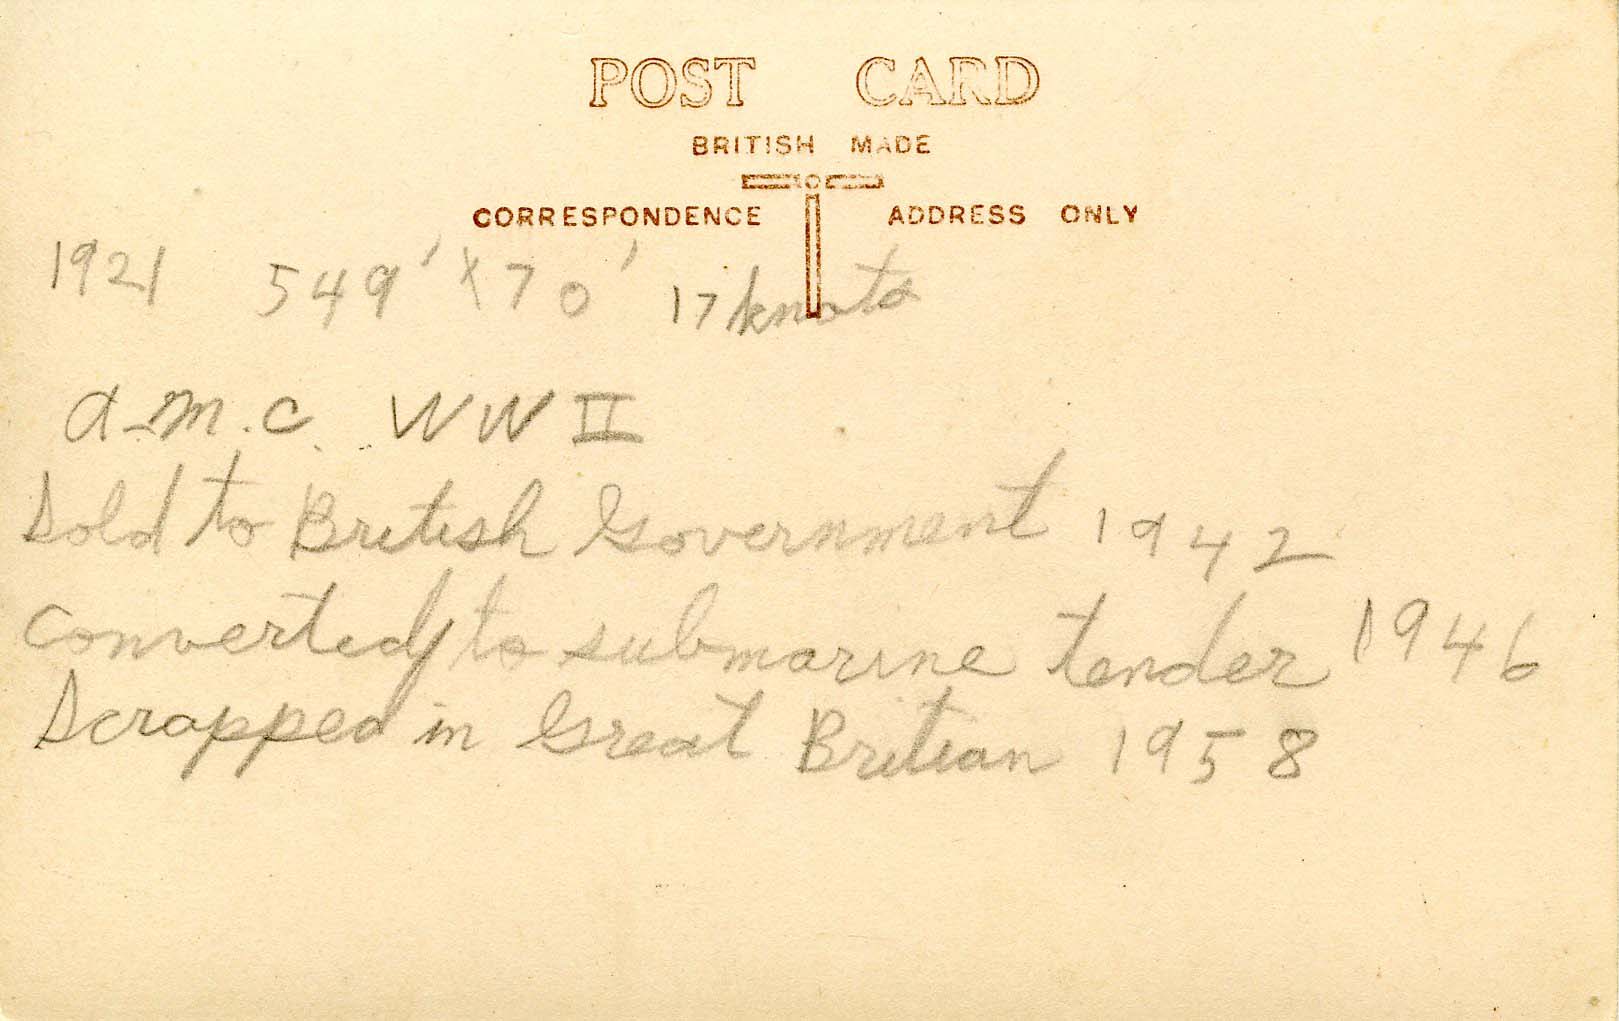 POST CARD
BRITISH MADE
CORRESPONDENCE ADDRESS ONLY
1921 549' x 70' 17 knots
a.m.c. WW II
Sold to British Government 1942
Converted to submarine tender 1946
Scrapped in Great Britian 1958